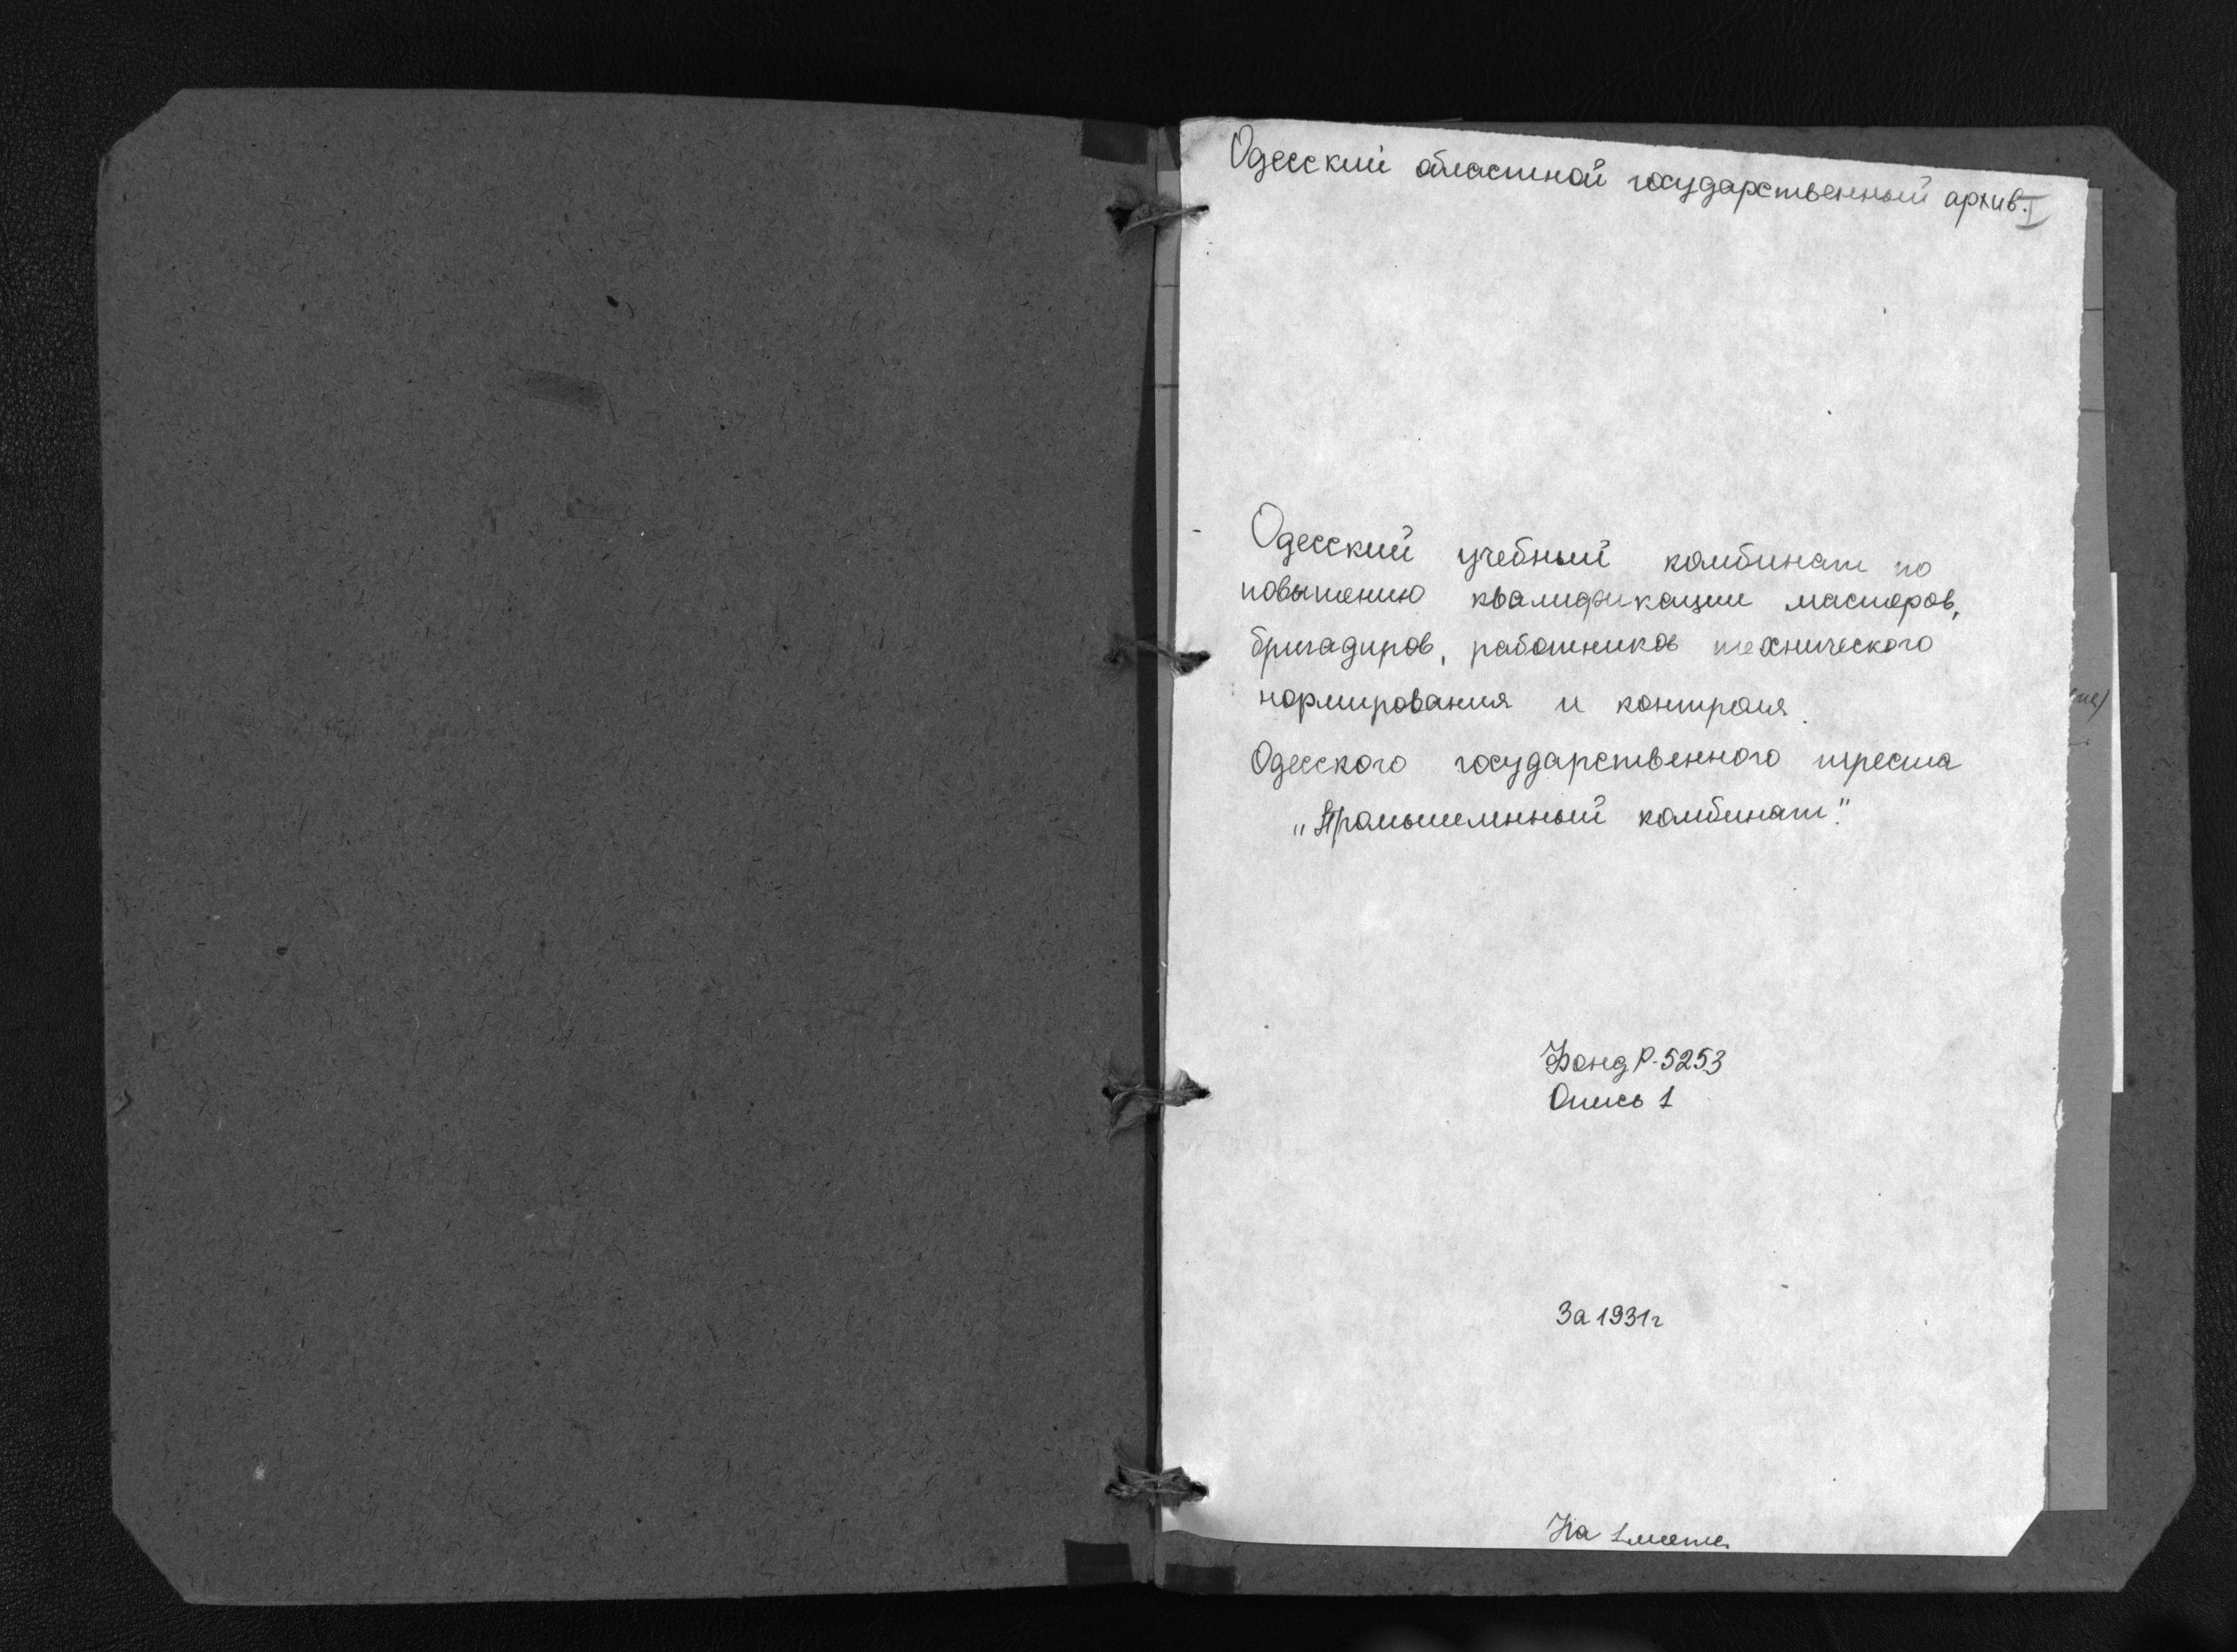 Одесский областной государственный архив.
I
Одесский учебный комбинат по
повышению квалификации мастеров,
бригадиров, работников технического
нормирования и контроля.
Одесского государственного треста
„Промышленный комбинат".
Фонд Р-5253
Опись 1
За 1931г
На 1 листе